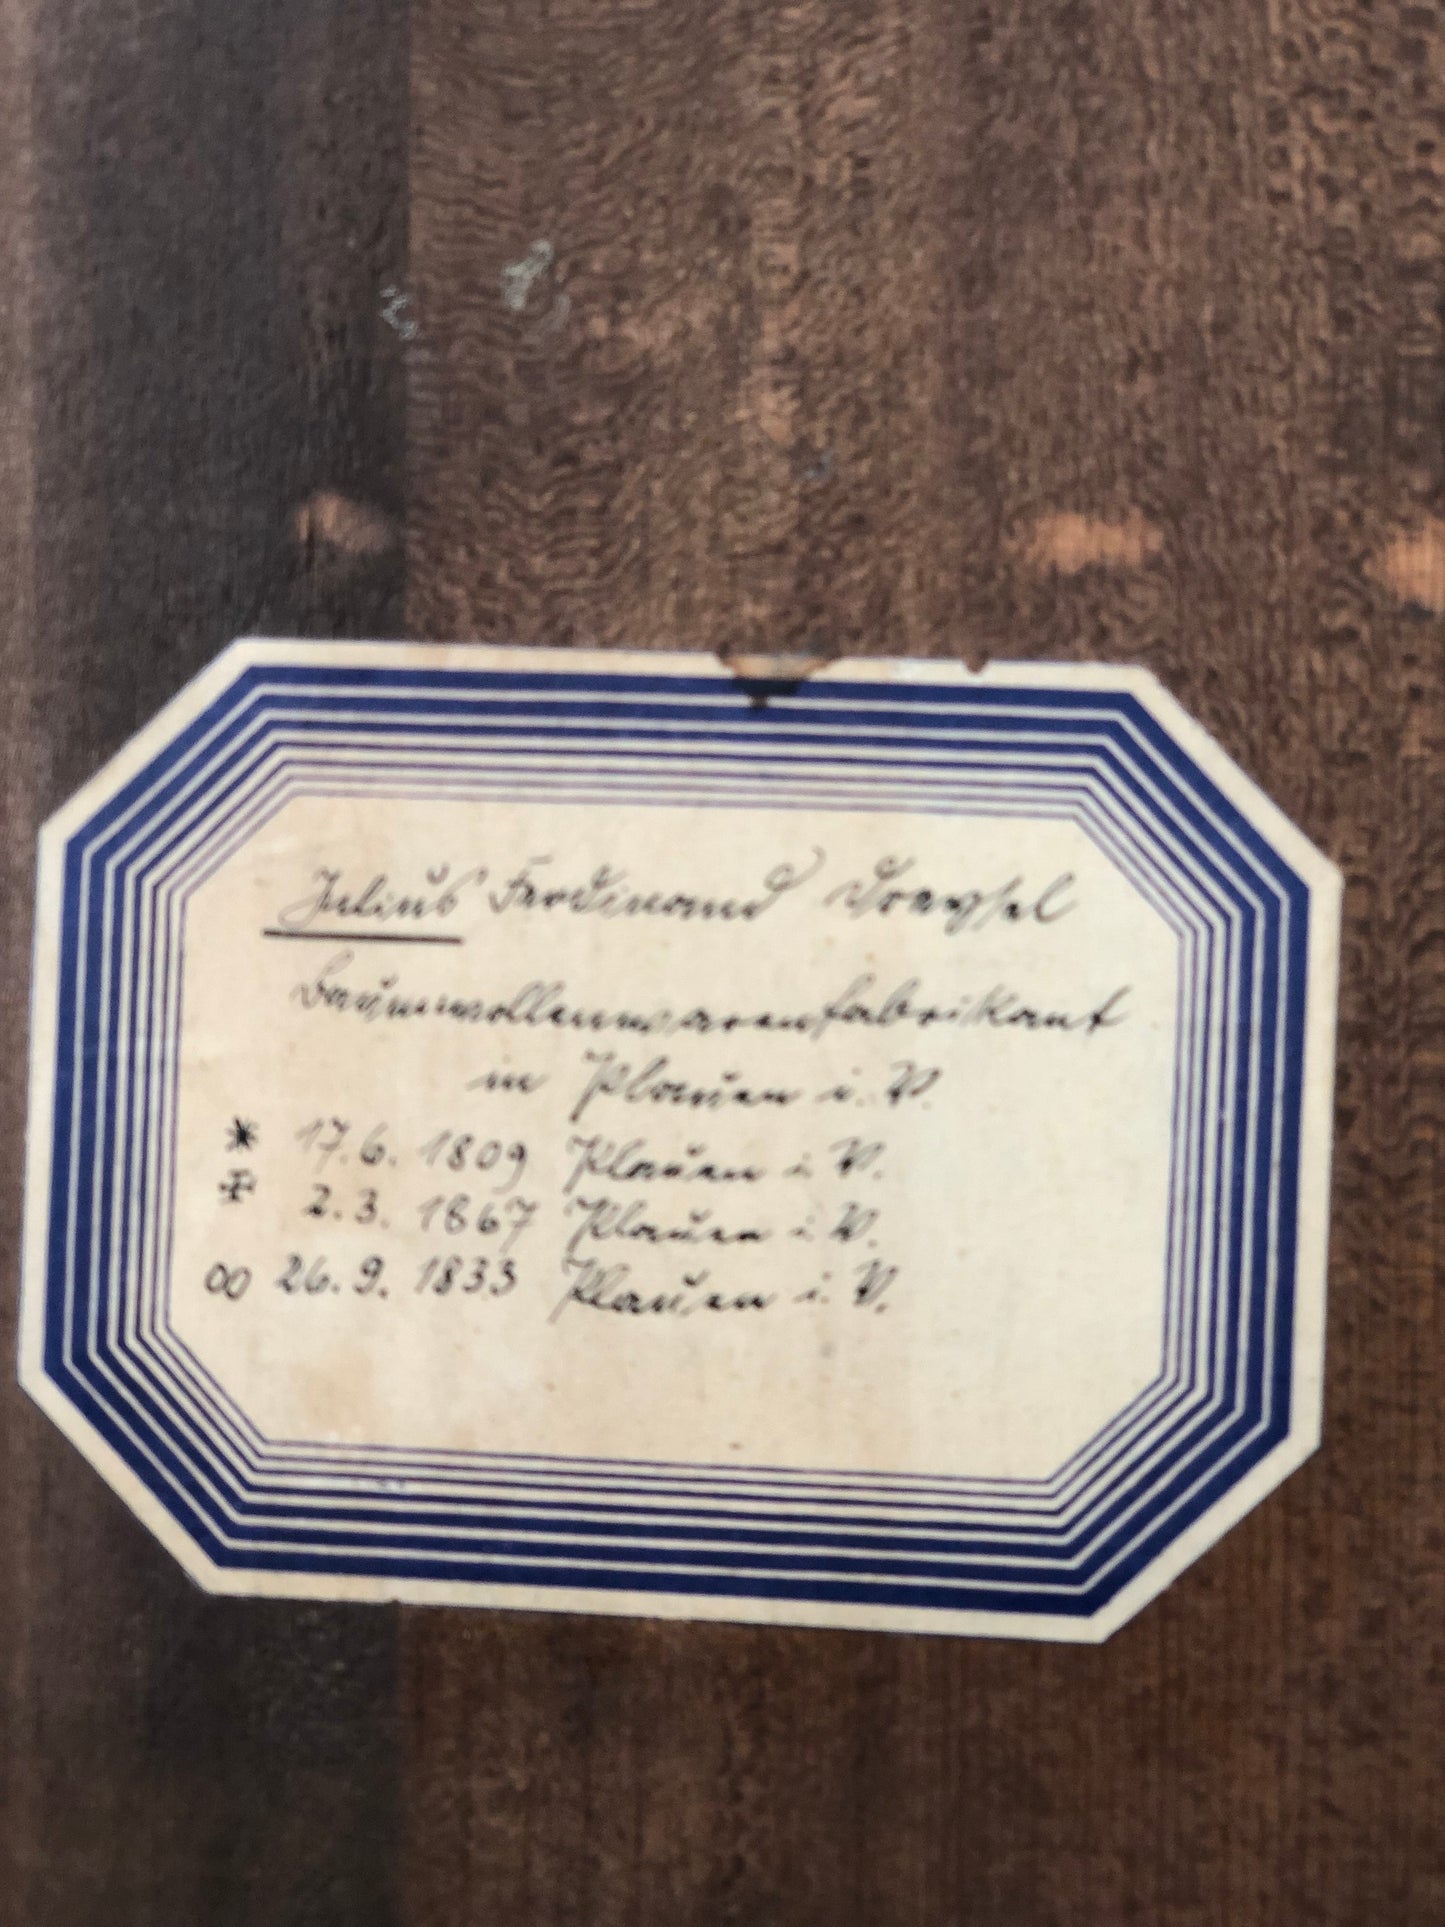 Julius Ferdinand
Baumwollenwarenfabrikant
in Plauen i. V.
* 17. 6. 1809 Plauen i. V.
✠ 2. 3. 1867 Plauen i. V.
∞ 26. 9. 1833 Plauen i. V.